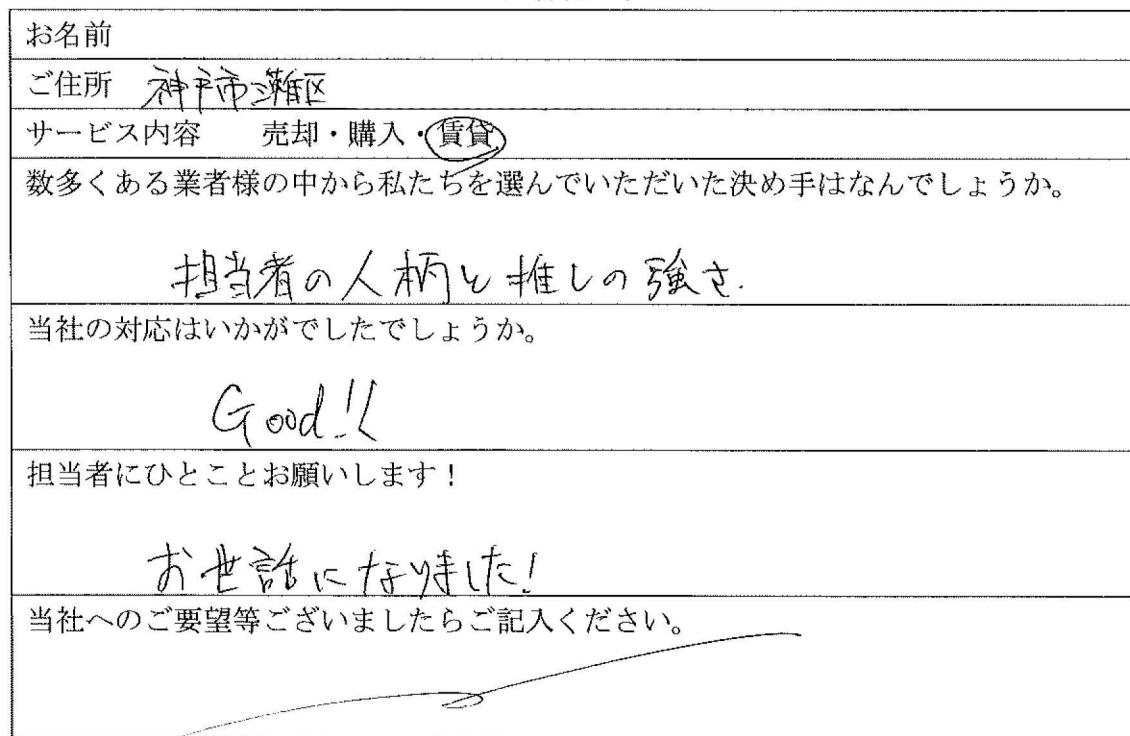 お名前
ご住所 神戸市灘区
サービス内容 売却・購入・賃貸
数多くある業者様の中から私たちを選んでいただいた決め手はなんでしょうか。
担当者の人柄と推しの強さ.
当社の対応はいかがでしたでしょうか。
Good!!
担当者にひとことお願いします!
お世話になりました!
当社へのご要望等ございましたらご記入ください。